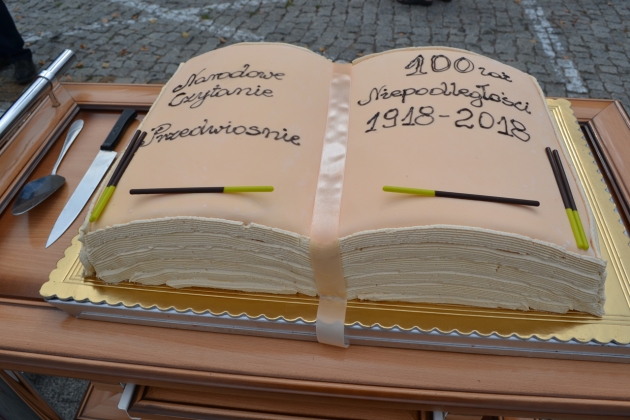 Narodowe
Czytanie
Przedwiośnie
100 lat
Niepodległości
1918-2018